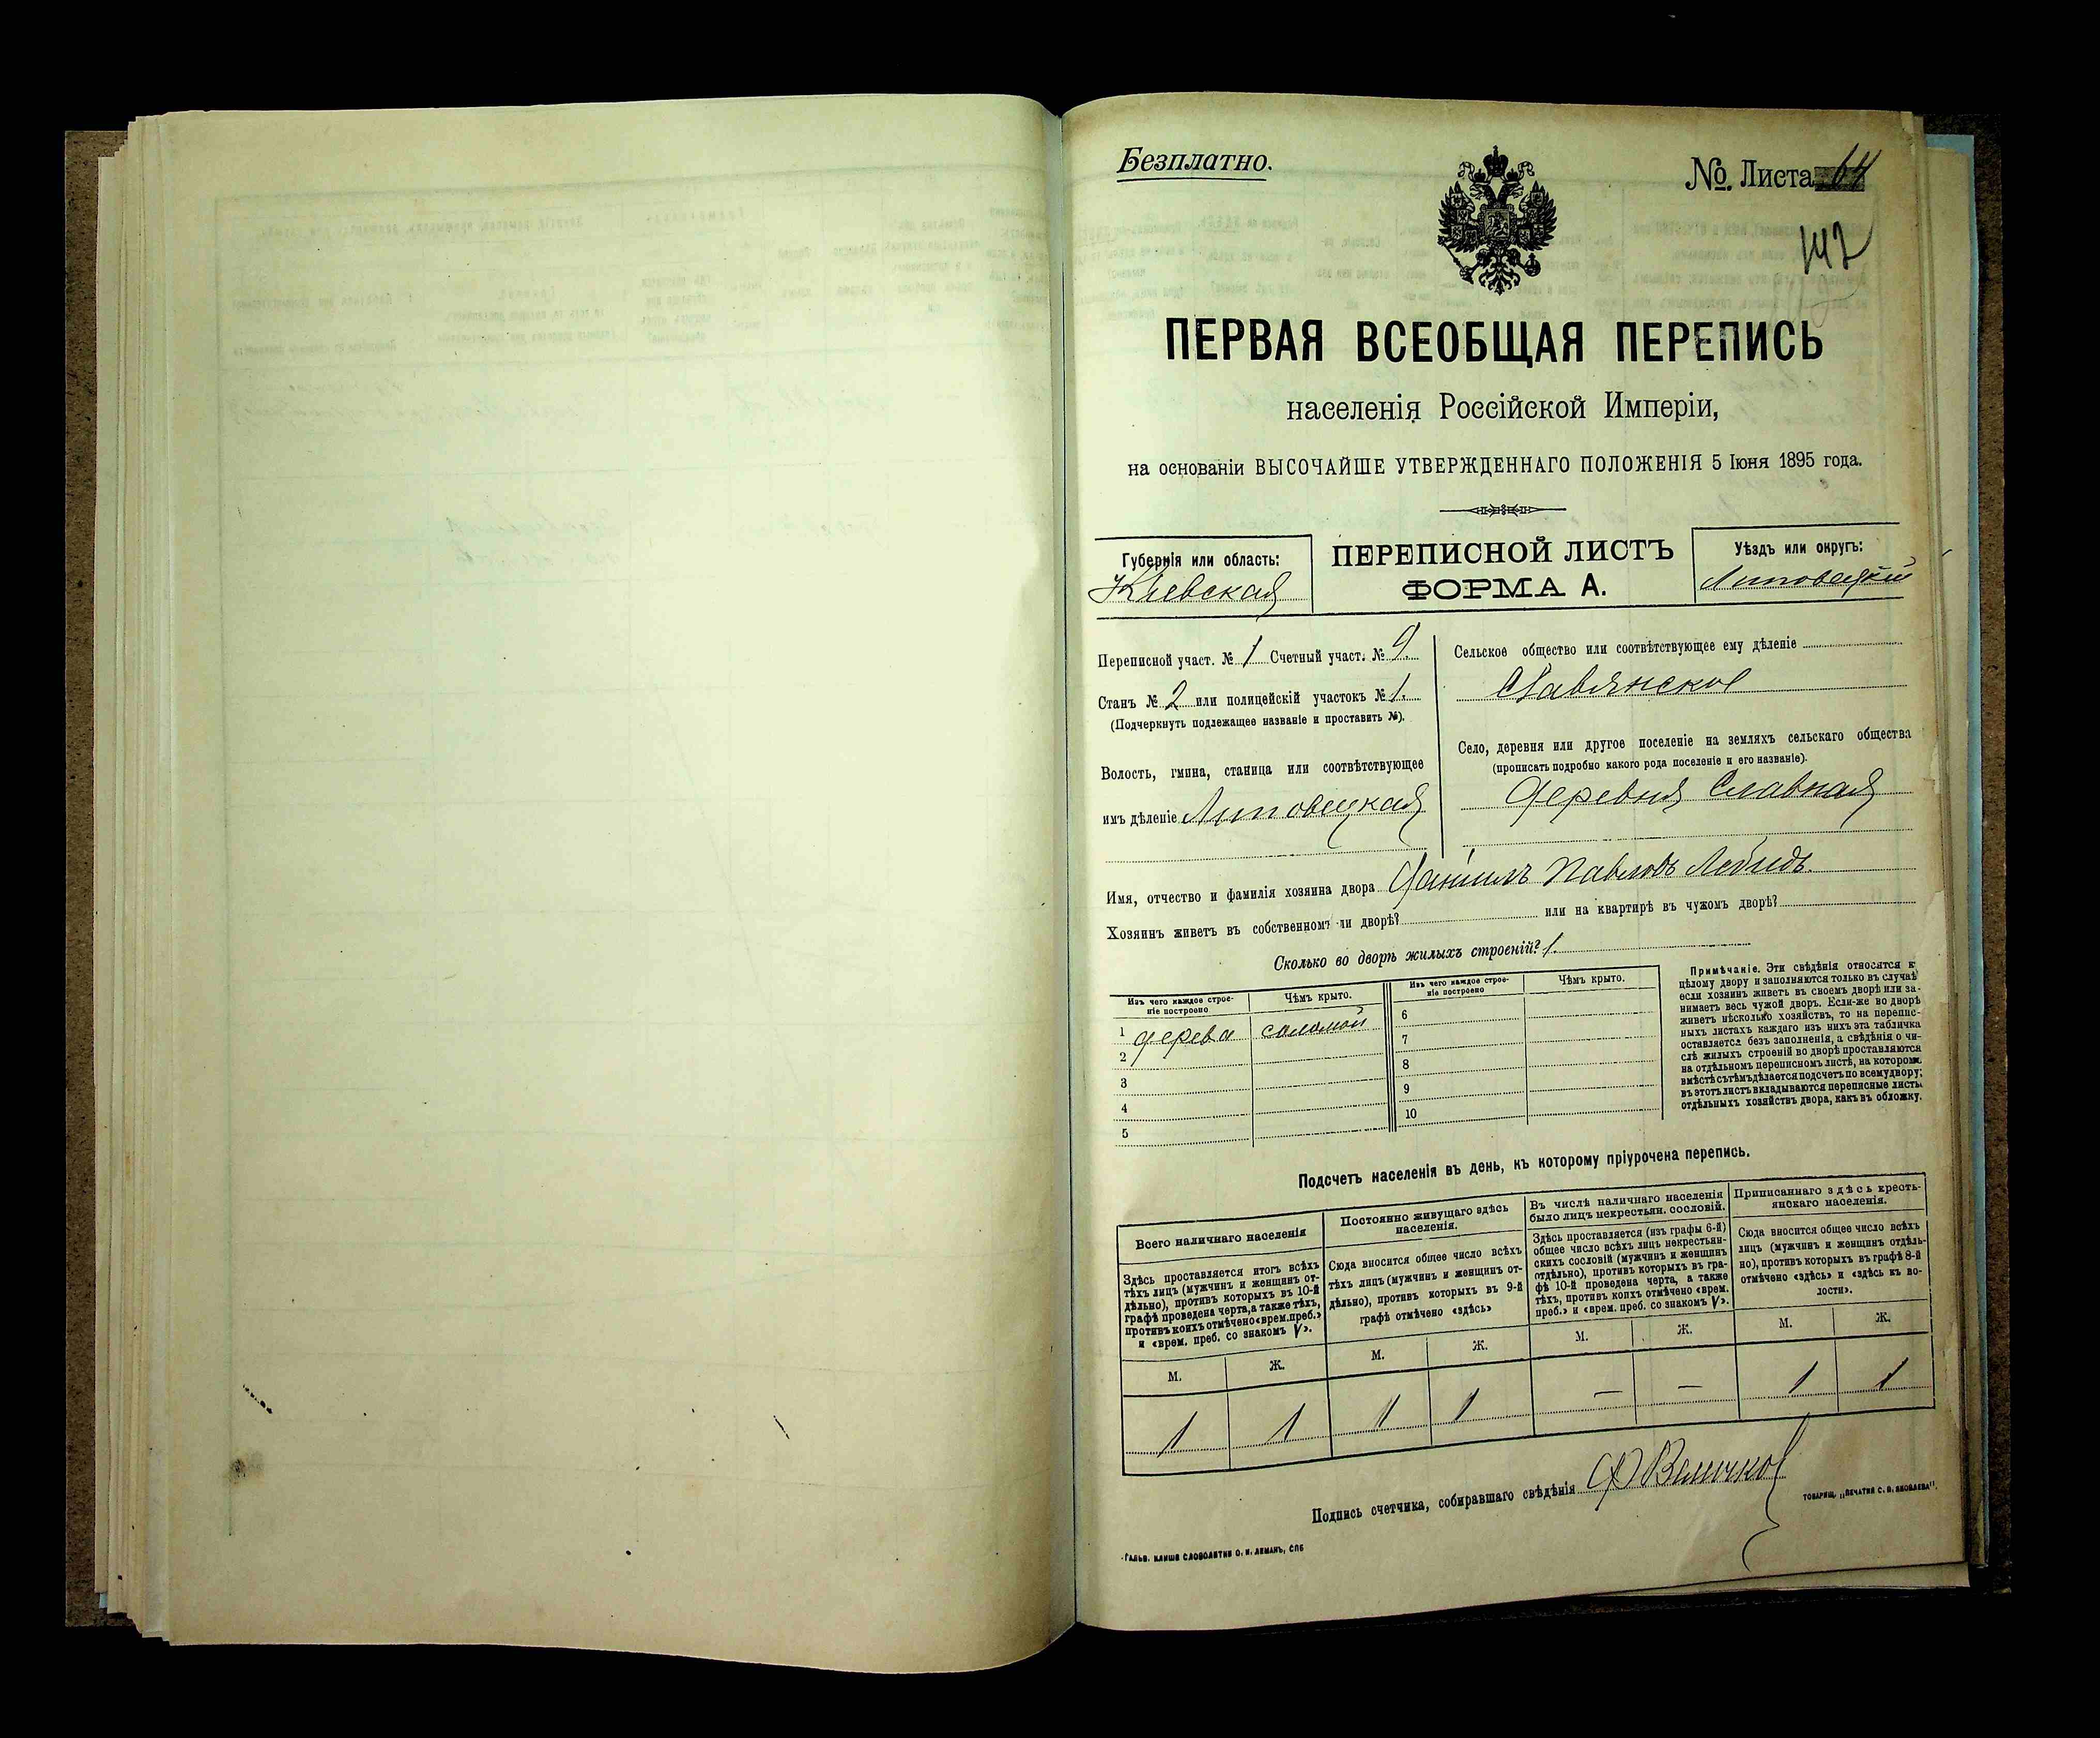 Безплатно.
№ Листа 64
142
ПЕРВАЯ ВСЕОБЩАЯ ПЕРЕПИСЬ
населенія Россійской Имперіи,
на основаніи ВЫСОЧАЙШЕ УТВЕРЖДЕННАГО ПОЛОЖЕНІЯ 5 Іюня 1895 года.
Губернія или область:
Кіевская
ПЕРЕПИСНОЙ ЛИСТЪ
ФОРМА А.
Уѣздъ или округъ:
Липовецкій
Переписной участ. № 1 Счетный участ. № 9.
Станъ № 2 или полицейскій участокъ № 1.
(Подчеркнуть подлежащее названіе и проставить №).
Волость, гмина, станица или соотвѣтствующее
имъ дѣленіе Липовецкая
Сельское общество или соотвѣтствующее ему дѣленіе
Славянское
Село, деревня или другое поселеніе на земляхъ сельскаго общества
(прописать подробно какого рода поселеніе и его названіе).
Деревня Славная
Имя, отчество и фамилія хозяина двора Даніилъ Павловъ Лебедь.
Хозяинъ живетъ въ собственномъ ли дворѣ? или на квартирѣ въ чужомъ дворѣ?
Сколько во дворѣ жилыхъ строеній? 1.
Изъ чего каждое строе-
ніе построено
Чѣмъ крыто.
1 дерева соломой
2
3
4
5
Изъ чего каждое строе-
ніе построено
Чѣмъ крыто.
6
7
8
9
10
Примѣчаніе. Эти свѣдѣнія относятся к
цѣлому двору и заполняются только въ случаѣ
если хозяинъ живетъ въ своемъ дворѣ или за-
нимаетъ весь чужой дворъ. Если-же во дворѣ
живетъ нѣсколько хозяйствъ, то на перепис-
ныхъ листахъ каждаго изъ нихъ эта табличка
оставляется безъ заполненія, а свѣдѣнія о чи-
слѣ жилыхъ строеній во дворѣ проставляются
на отдѣльномъ переписномъ листѣ, на которомъ
вмѣстѣ съ тѣмъ дѣлается подсчетъ по всему двору;
въ этотъ листъ вкладываются переписные листы
отдѣльныхъ хозяйствъ двора, какъ въ обложку.
Подсчетъ населенія въ день, къ которому пріурочена перепись.
Всего наличнаго населенія
Здѣсь проставляется итогъ всѣхъ
тѣхъ лицъ (мужчинъ и женщинъ от-
дѣльно), противъ которыхъ въ 10-й
графѣ проведена черта, а также тѣхъ,
противъ коихъ отмѣчено «врем. преб.»
и «врем. преб. со знакомъ V».
М. Ж.
1 1
Постоянно живущаго здѣсь
населенія.
Сюда вносится общее число всѣхъ
тѣхъ лицъ (мужчинъ и женщинъ от-
дѣльно), противъ которыхъ въ 9-й
графѣ отмѣчено «здѣсь»
М. Ж.
1 1
Въ числѣ наличнаго населенія
было лицъ некрестьян. сословій.
Здѣсь проставляется (изъ графы 6-й)
общее число всѣхъ лицъ некрестьян-
скихъ сословій (мужчинъ и женщинъ
отдѣльно), противъ которыхъ въ гра-
фѣ 10-й проведена черта, а также
тѣхъ, противъ коихъ отмѣчено «врем.
преб.» и «врем. преб. со знакомъ V».
М. Ж.
— —
Приписаннаго здѣсь кресть-
янскаго населенія.
Сюда вносится общее число всѣхъ
лицъ (мужчинъ и женщинъ отдѣль-
но), противъ которыхъ въ графѣ 8-й
отмѣчено «здѣсь» и «здѣсь къ во-
лости».
М. Ж.
1 1
Подпись счетчика, собиравшаго свѣдѣнія Ф Величко
Гальв. клише словолитни О. И. Леманъ, СПб
Товарищ. „Печатня С. П. Яковлева“.